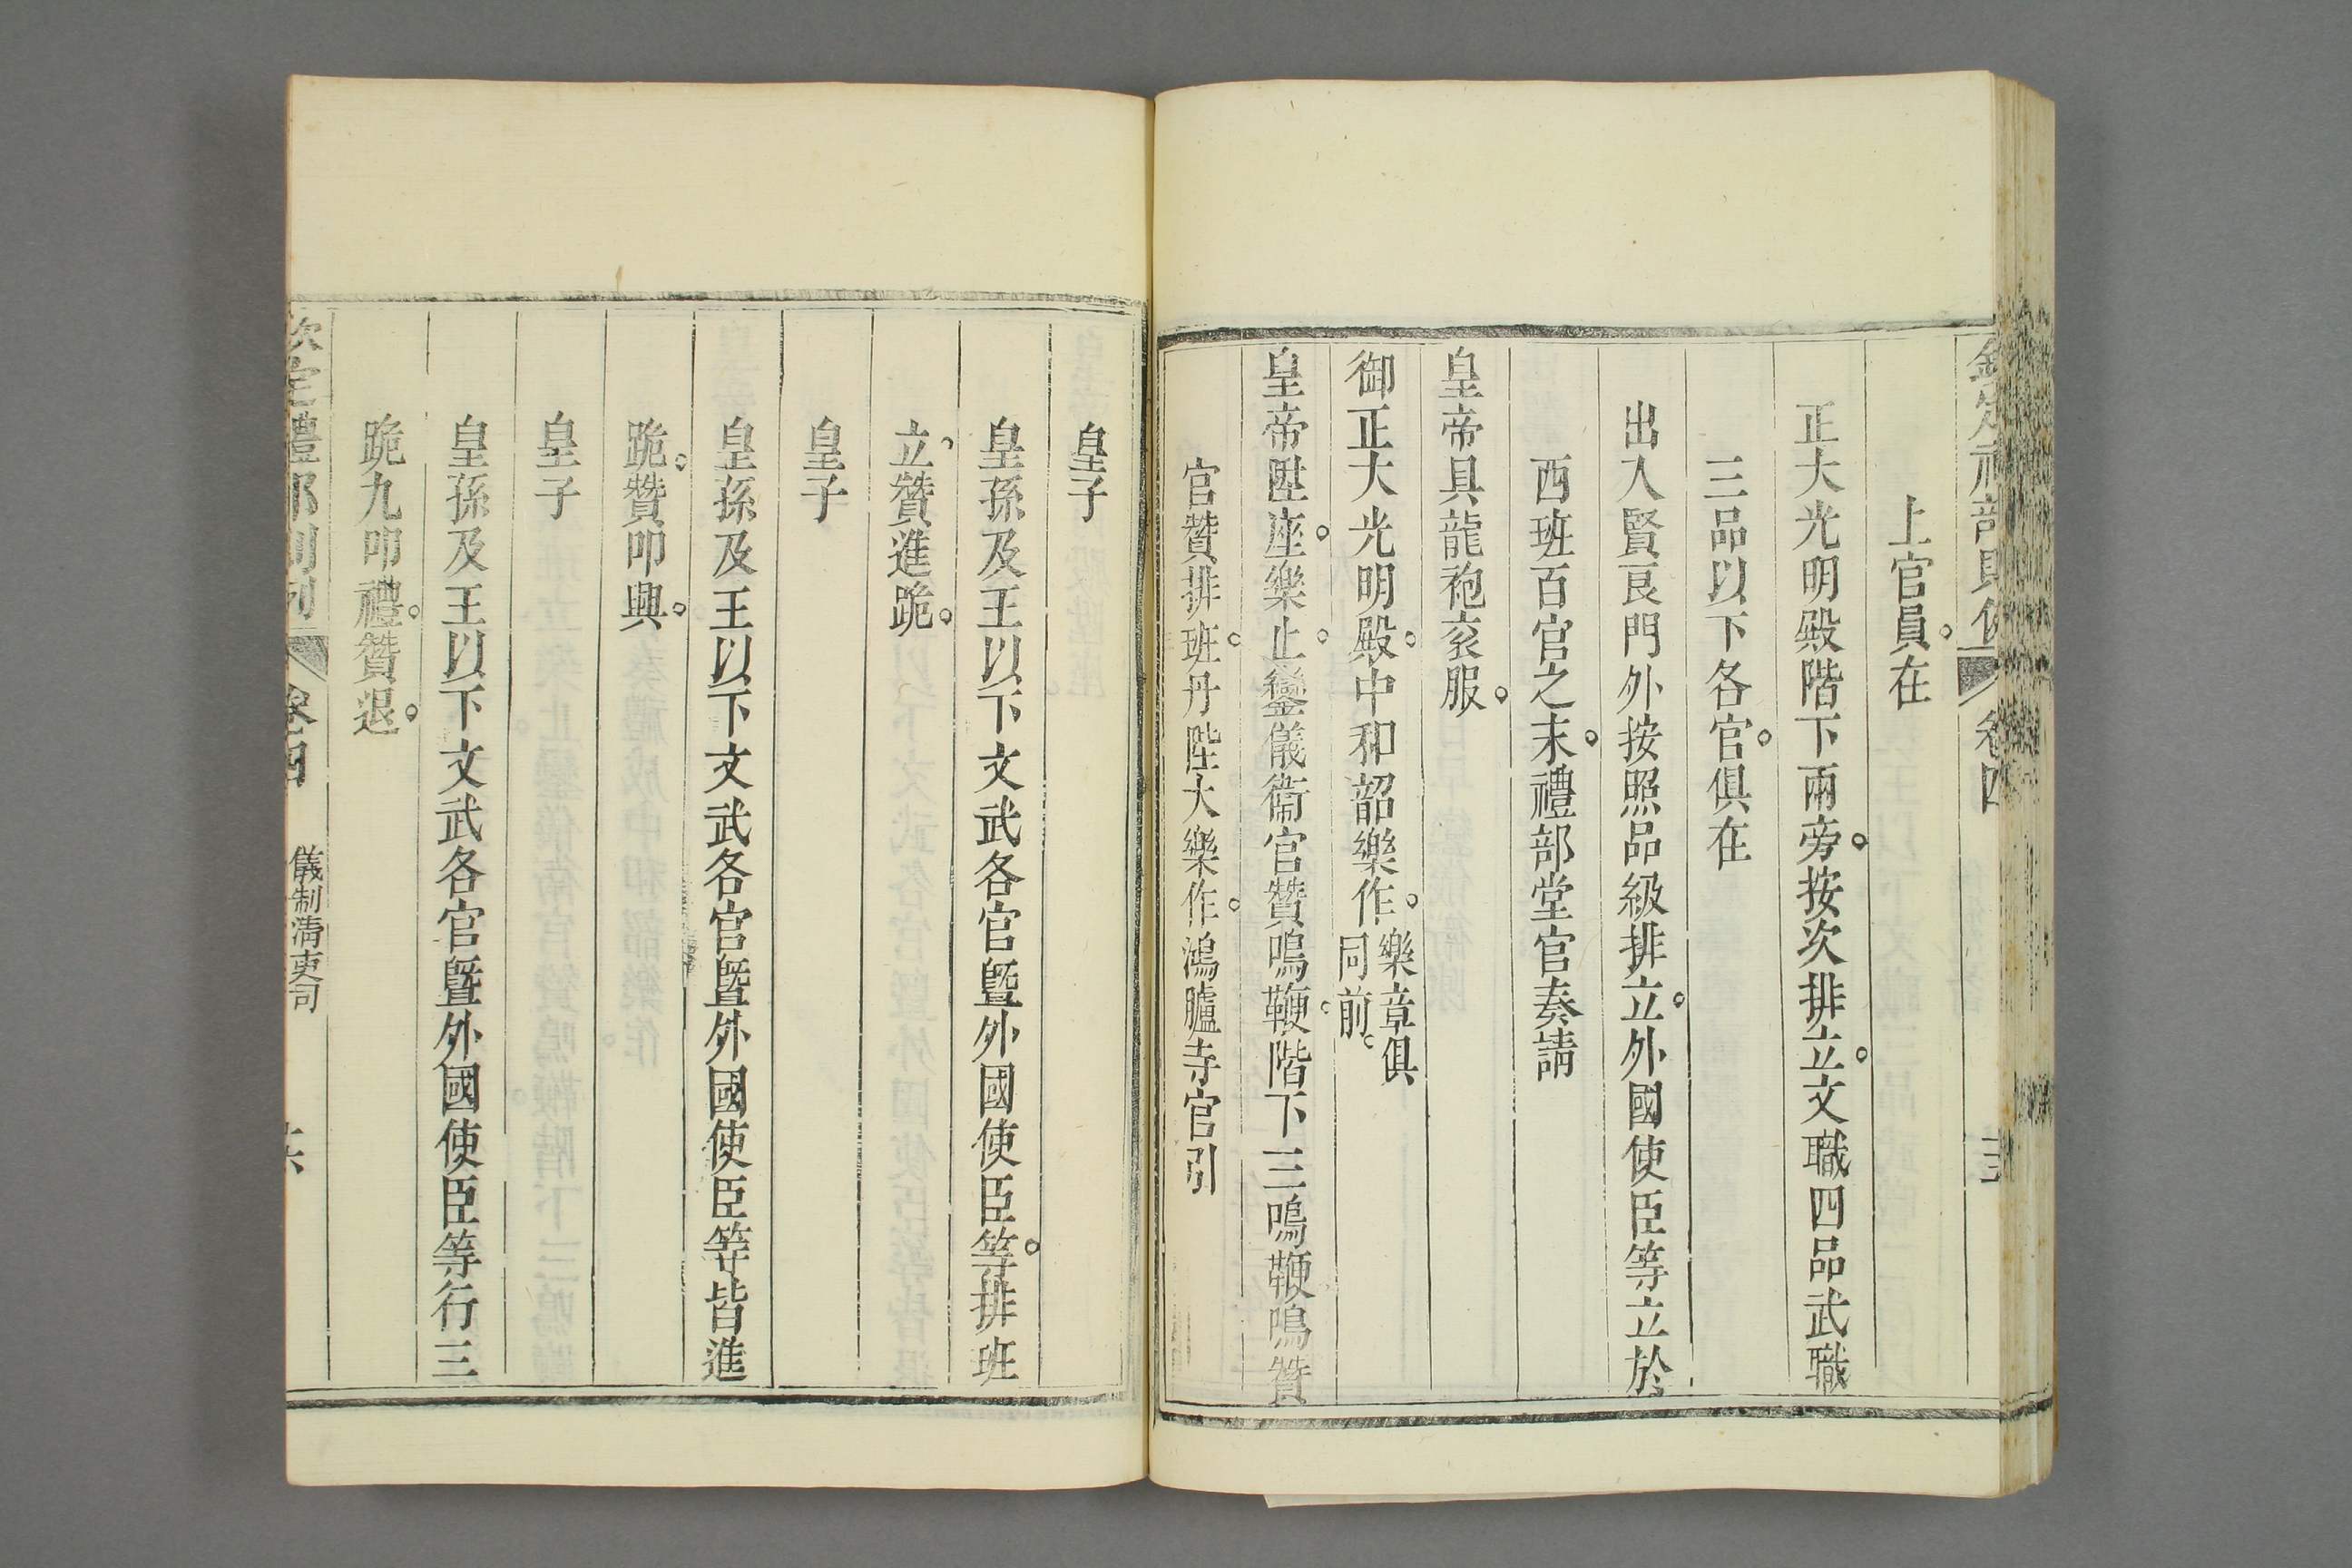 上官員。在
正大光明殿階下兩旁。按次排立。文職四品武職
三品以下各官。俱在
出入賢良門外按照品級排立。外國使臣等立於
西班百官之末。禮部堂官奏請
皇帝具龍袍衮服。
御正大光明殿。中和韶樂作。樂章俱
同前。
皇帝陞座。樂止。鑾儀衞官贊鳴鞭。階下三鳴鞭鳴贊
官贊排班。丹陛大樂作。鴻臚寺官引
皇子
皇孫及王以下文武各官暨外國使臣等。排班
立。贊進跪。
皇子
皇孫及王以下文武各官暨外國使臣等皆進
跪。贊叩興。
皇子
皇孫及王以下文武各官暨外國使臣等行三
跪九叩禮。贊退。
欽定禮部則例
卷四
儀制清吏司